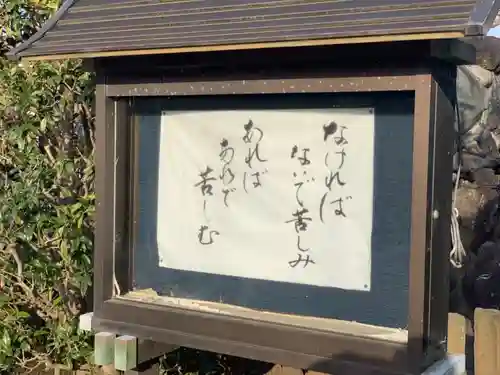 なければ
ないで苦しみ
あれば
あるで苦しむ